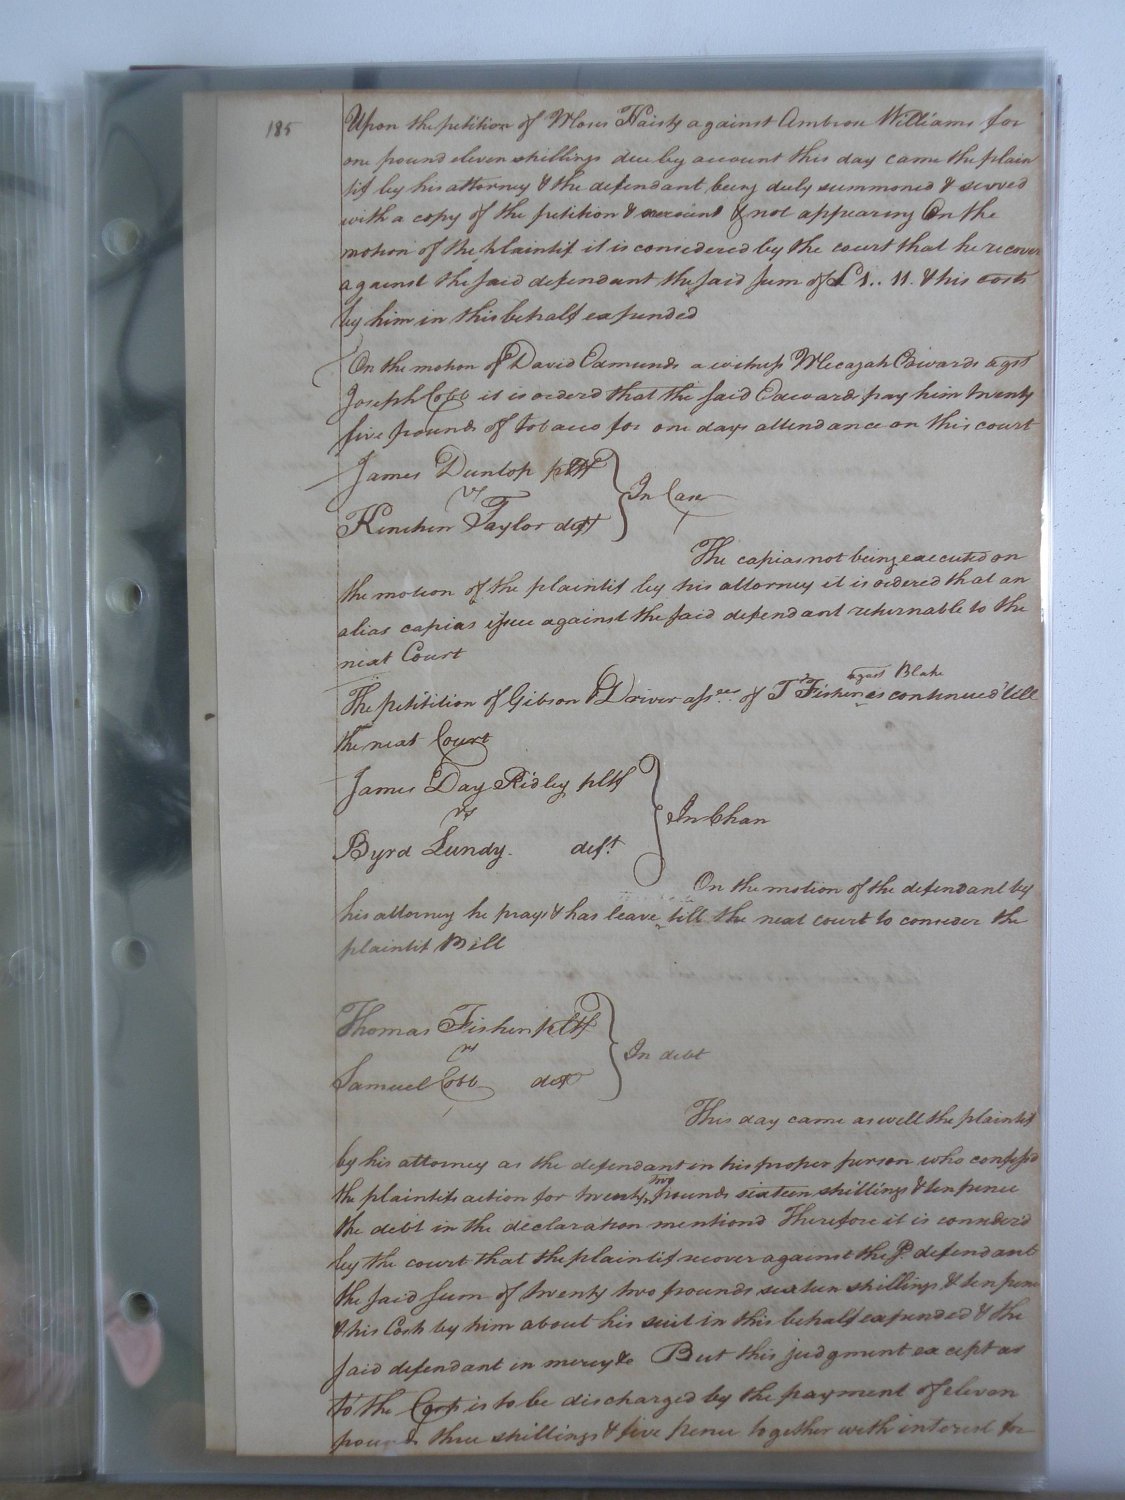 185
Upon the petition of Moses Haisty against Ambrose Williams for
one pound eleven shillings due by account this day came the plain
tif by his attorney & the defendant being duly summoned & served
with a copy of the petition & account & not appearing On the
motion of the plaintif it is considered by the court that he recover
against the said defendant the said sum of £1..11. & his costs
by him in this behalf expended
On the motion of David Edmunds a witness Mecajah Edwards agst
Joseph Cobb it is orderd that the said Edwards pay him twenty
five pounds of tobacco for one days attendance on this court
James Dunlop pltff
vs
Kinchen Taylor deft
In Case
The capias not being executed on
the motion of the plaintif by his attorney it is ordered that an
alias capias issue against the said defendant returnable to the
next Court
agast Blake
The petitition of Gibson & Driver assees. of T Fisher is continued till
the next Court
James Day Ridley pltf
vs
Byrd Lundy. deft
In Chan
On the motion of the defendant by
his attorney he prays & has leave till the next court to consider the
plaintif Bill
Thomas Fisher pltff
vs
Samuel Cobb deft
In debt
This day came as well the plaintif
by his attorney as the defendant in his proper person who confessd
two
the plaintifs action for twenty pounds sixteen shillings & ten pence
the debt in the declaration mentiond Therefore it is considerd
by the court that the plaintif recover against the sd. defendant
the said sum of twenty two pounds sixteen shillings & ten pence
& his Costs by him about his suit in this behalf expended & the
said defendant in mercy &c But this judgment except as
to the Costs is to be discharged by the payment of eleven
pounds three shillings & five pence together with interest for